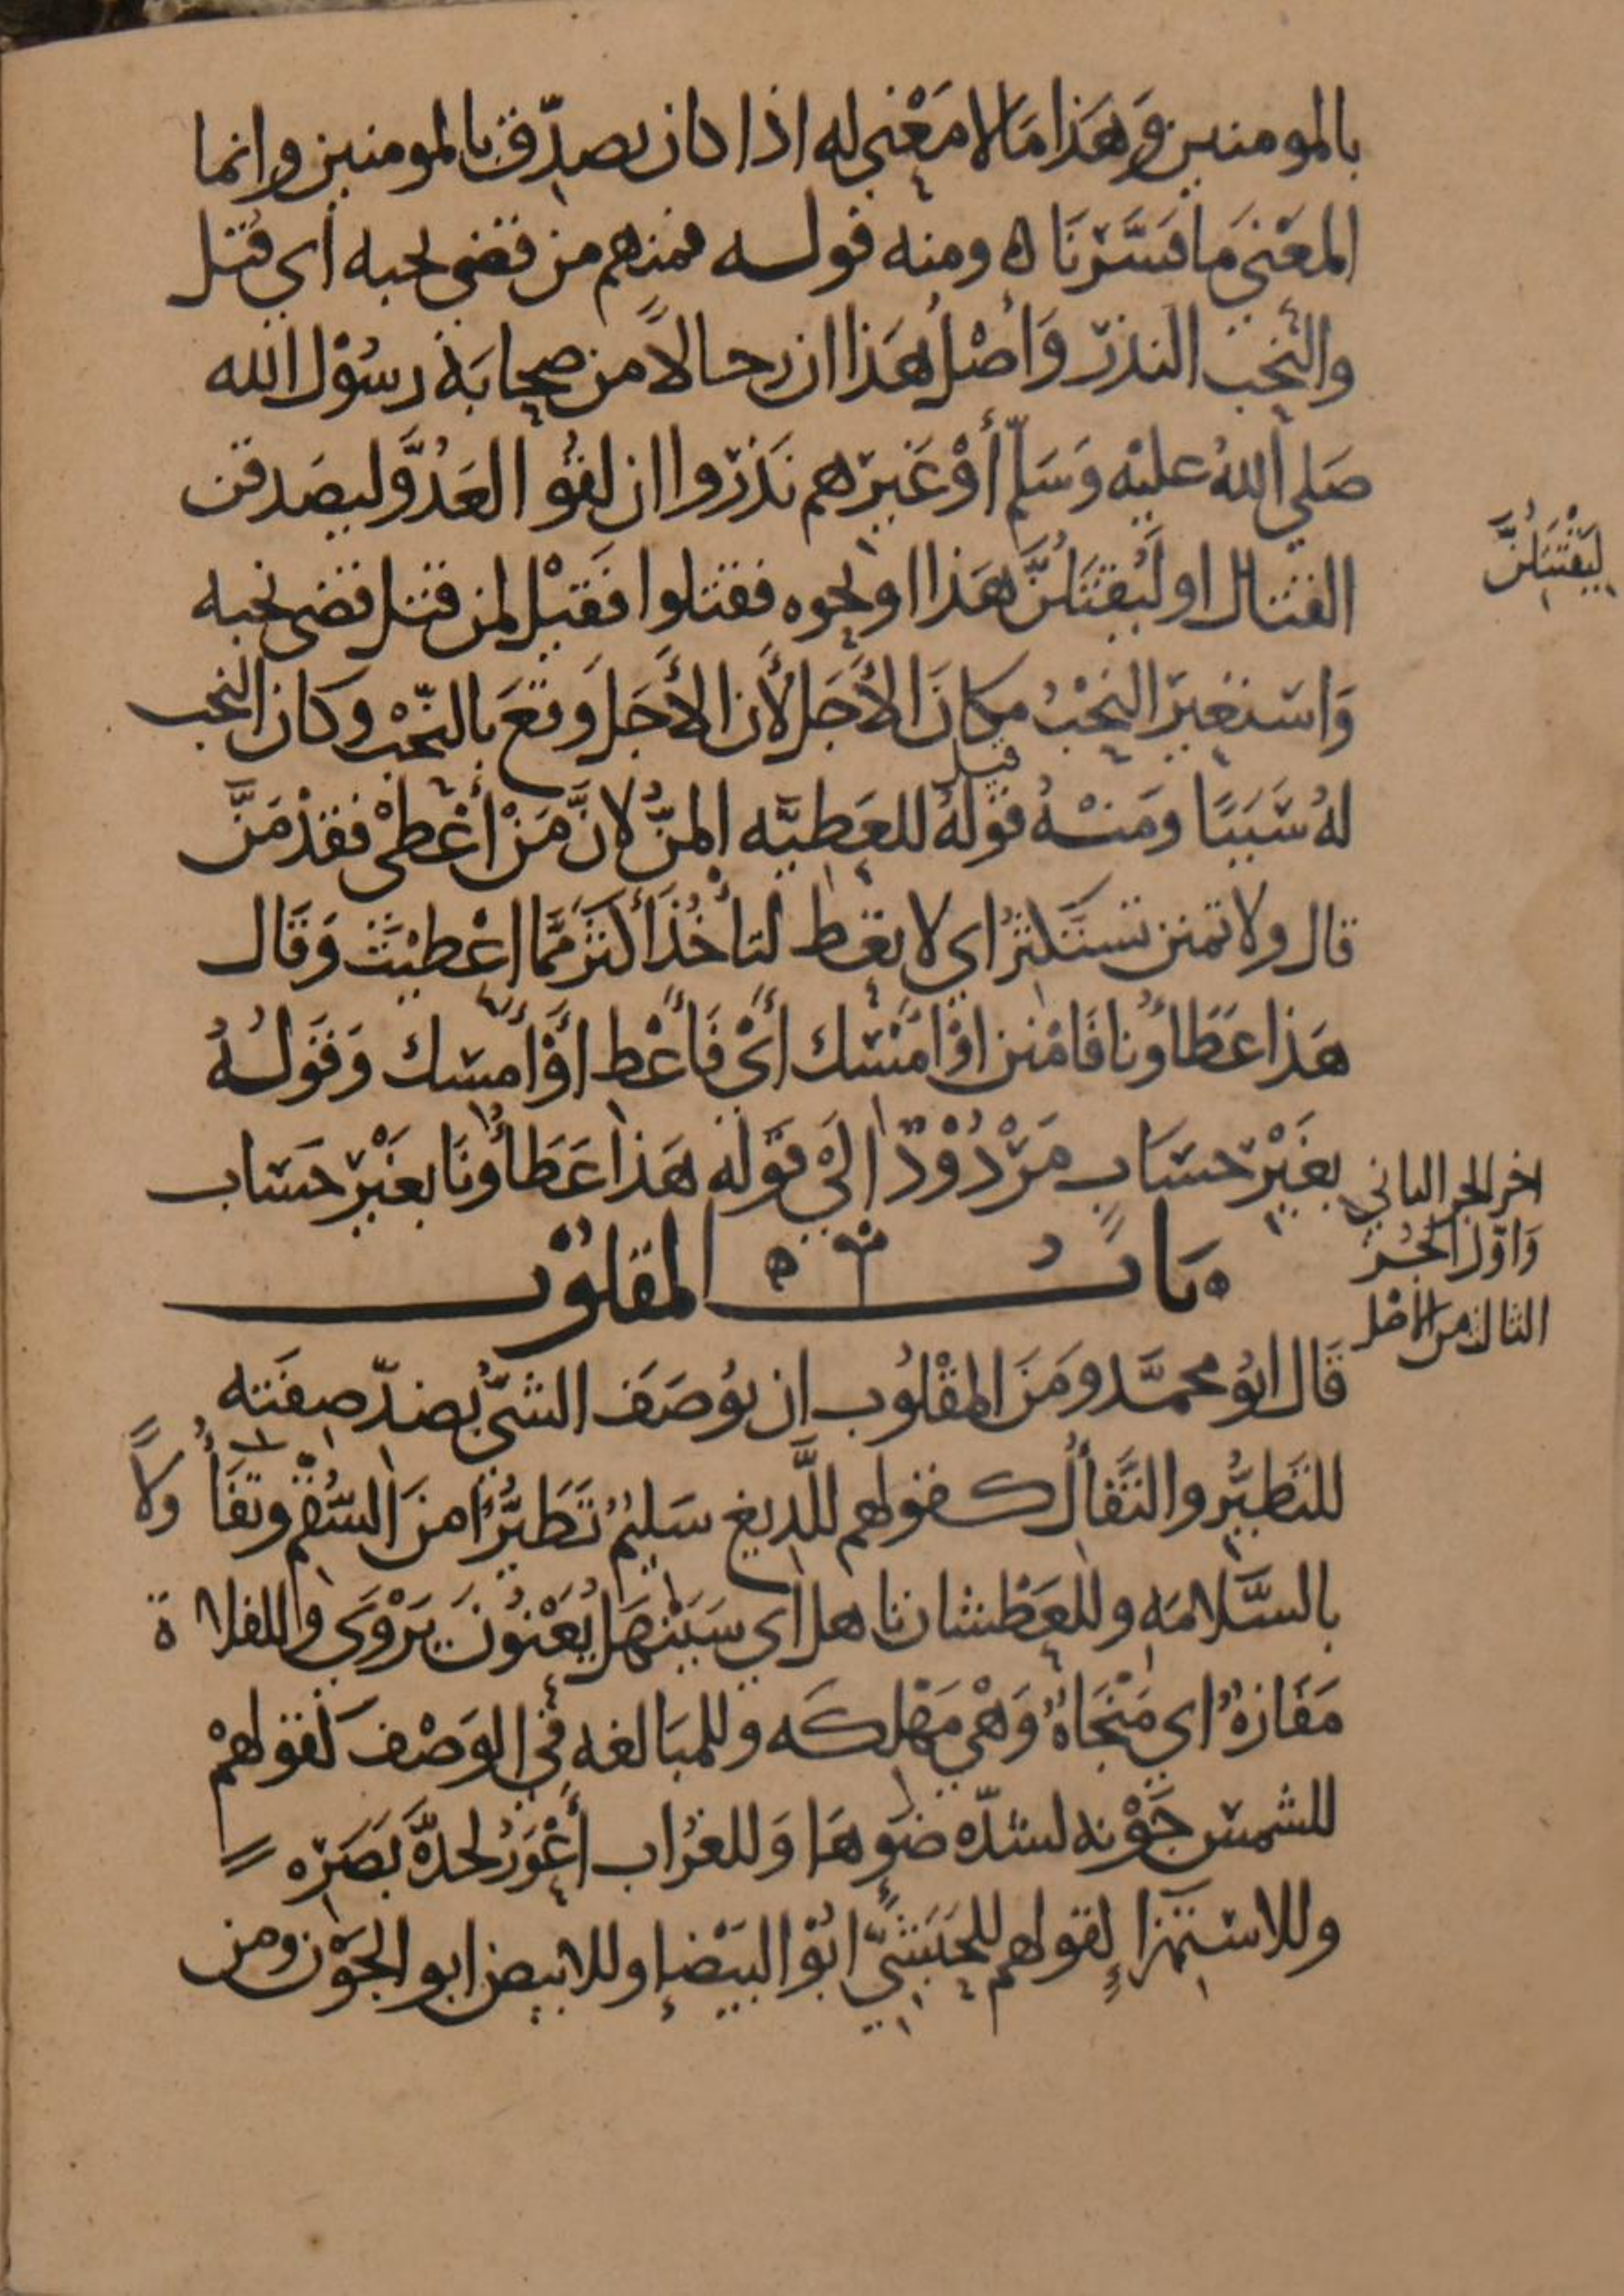 بالمومنين وَهَذا مَا لا مَعْني له اذا كان يصدّق بالمومنين وانما
المعْنَي مَا فسَّرْنَاه ومنه قوله فمنهم من قضى نحبه أي قُتل
والنَّحْب النذرَ وَأصْلُ هَذا ان رجالاً من صحابَة رسُوْل الله
صَلي اللهُ عليْه وَسَلّم أوْ غَيرهم نَذرَوا ان لقُو العَدُوَّ ليصَدقن
القتال او ليُقْتَلُنَّ هَذا او نحوه فقتلوا فَقيْل لمن قتل قضى نحبه
ليُقْتَلُنَّ
وَاستغيرَ النحْبُ مكانَ الأَجَل لأَن الأَجَل وَقعَ بالنّحْب وكان النحب
لهُ سَّبَبًا ومنْهُ قولهُ قيل للعَطيَّه المنُّ لانَّ مَنْ أعْطىْ فقدْ مَنَّ
قال ولا تمنن تستَكثرُ اي لا تعْط لتأخُذَ أكثرَ ممَّا اعْطيْتَ وَقَال
هَذا عَطَاؤُنا فَامْنن اوْ امْسك أَيْ فَأعْط أوْ أمسك وَقَولُهُ
بغَيْر حسَابٍ مَرْدُوْدٌ الَيْ قوْله هَذا عَطَأُونَا بغَيْر حسَاب
اخر الجز الثاني
وَاوَّل الجُز
الثالث من الأصْل
بَابُ المقلوُب
قَال ابُو محمَّد ومَنَ المقْلُوب ان يوُصَفَ الشيُّ بضدّ صفَته
للتَطيُّر والتَّفأُل كقولهم للَّديغ سَليمُ تَطَيُّرًا منَ السُّقْم وتفَأُ ولاً
بالسَّلامَه وللعَطْشان ناهل أي سَيَنْهَل يُعْنُونَ يَرْوَي وللفلاة
مَفَازةُ اي مَنْجَاةُ وَهْي مَهْلكَه وللمبَالغه في الوَصْف كقولهمْ
للشمس جَوْنه لشدّه ضَوهَا وَللغرُاب أعْوَرُ لحدَّه بَصَره
وللاستهزاءِ لقولهم للحَبَشيّ ابُوْ البَيْضاءِ وللابيض ابو الجَوْن ومن